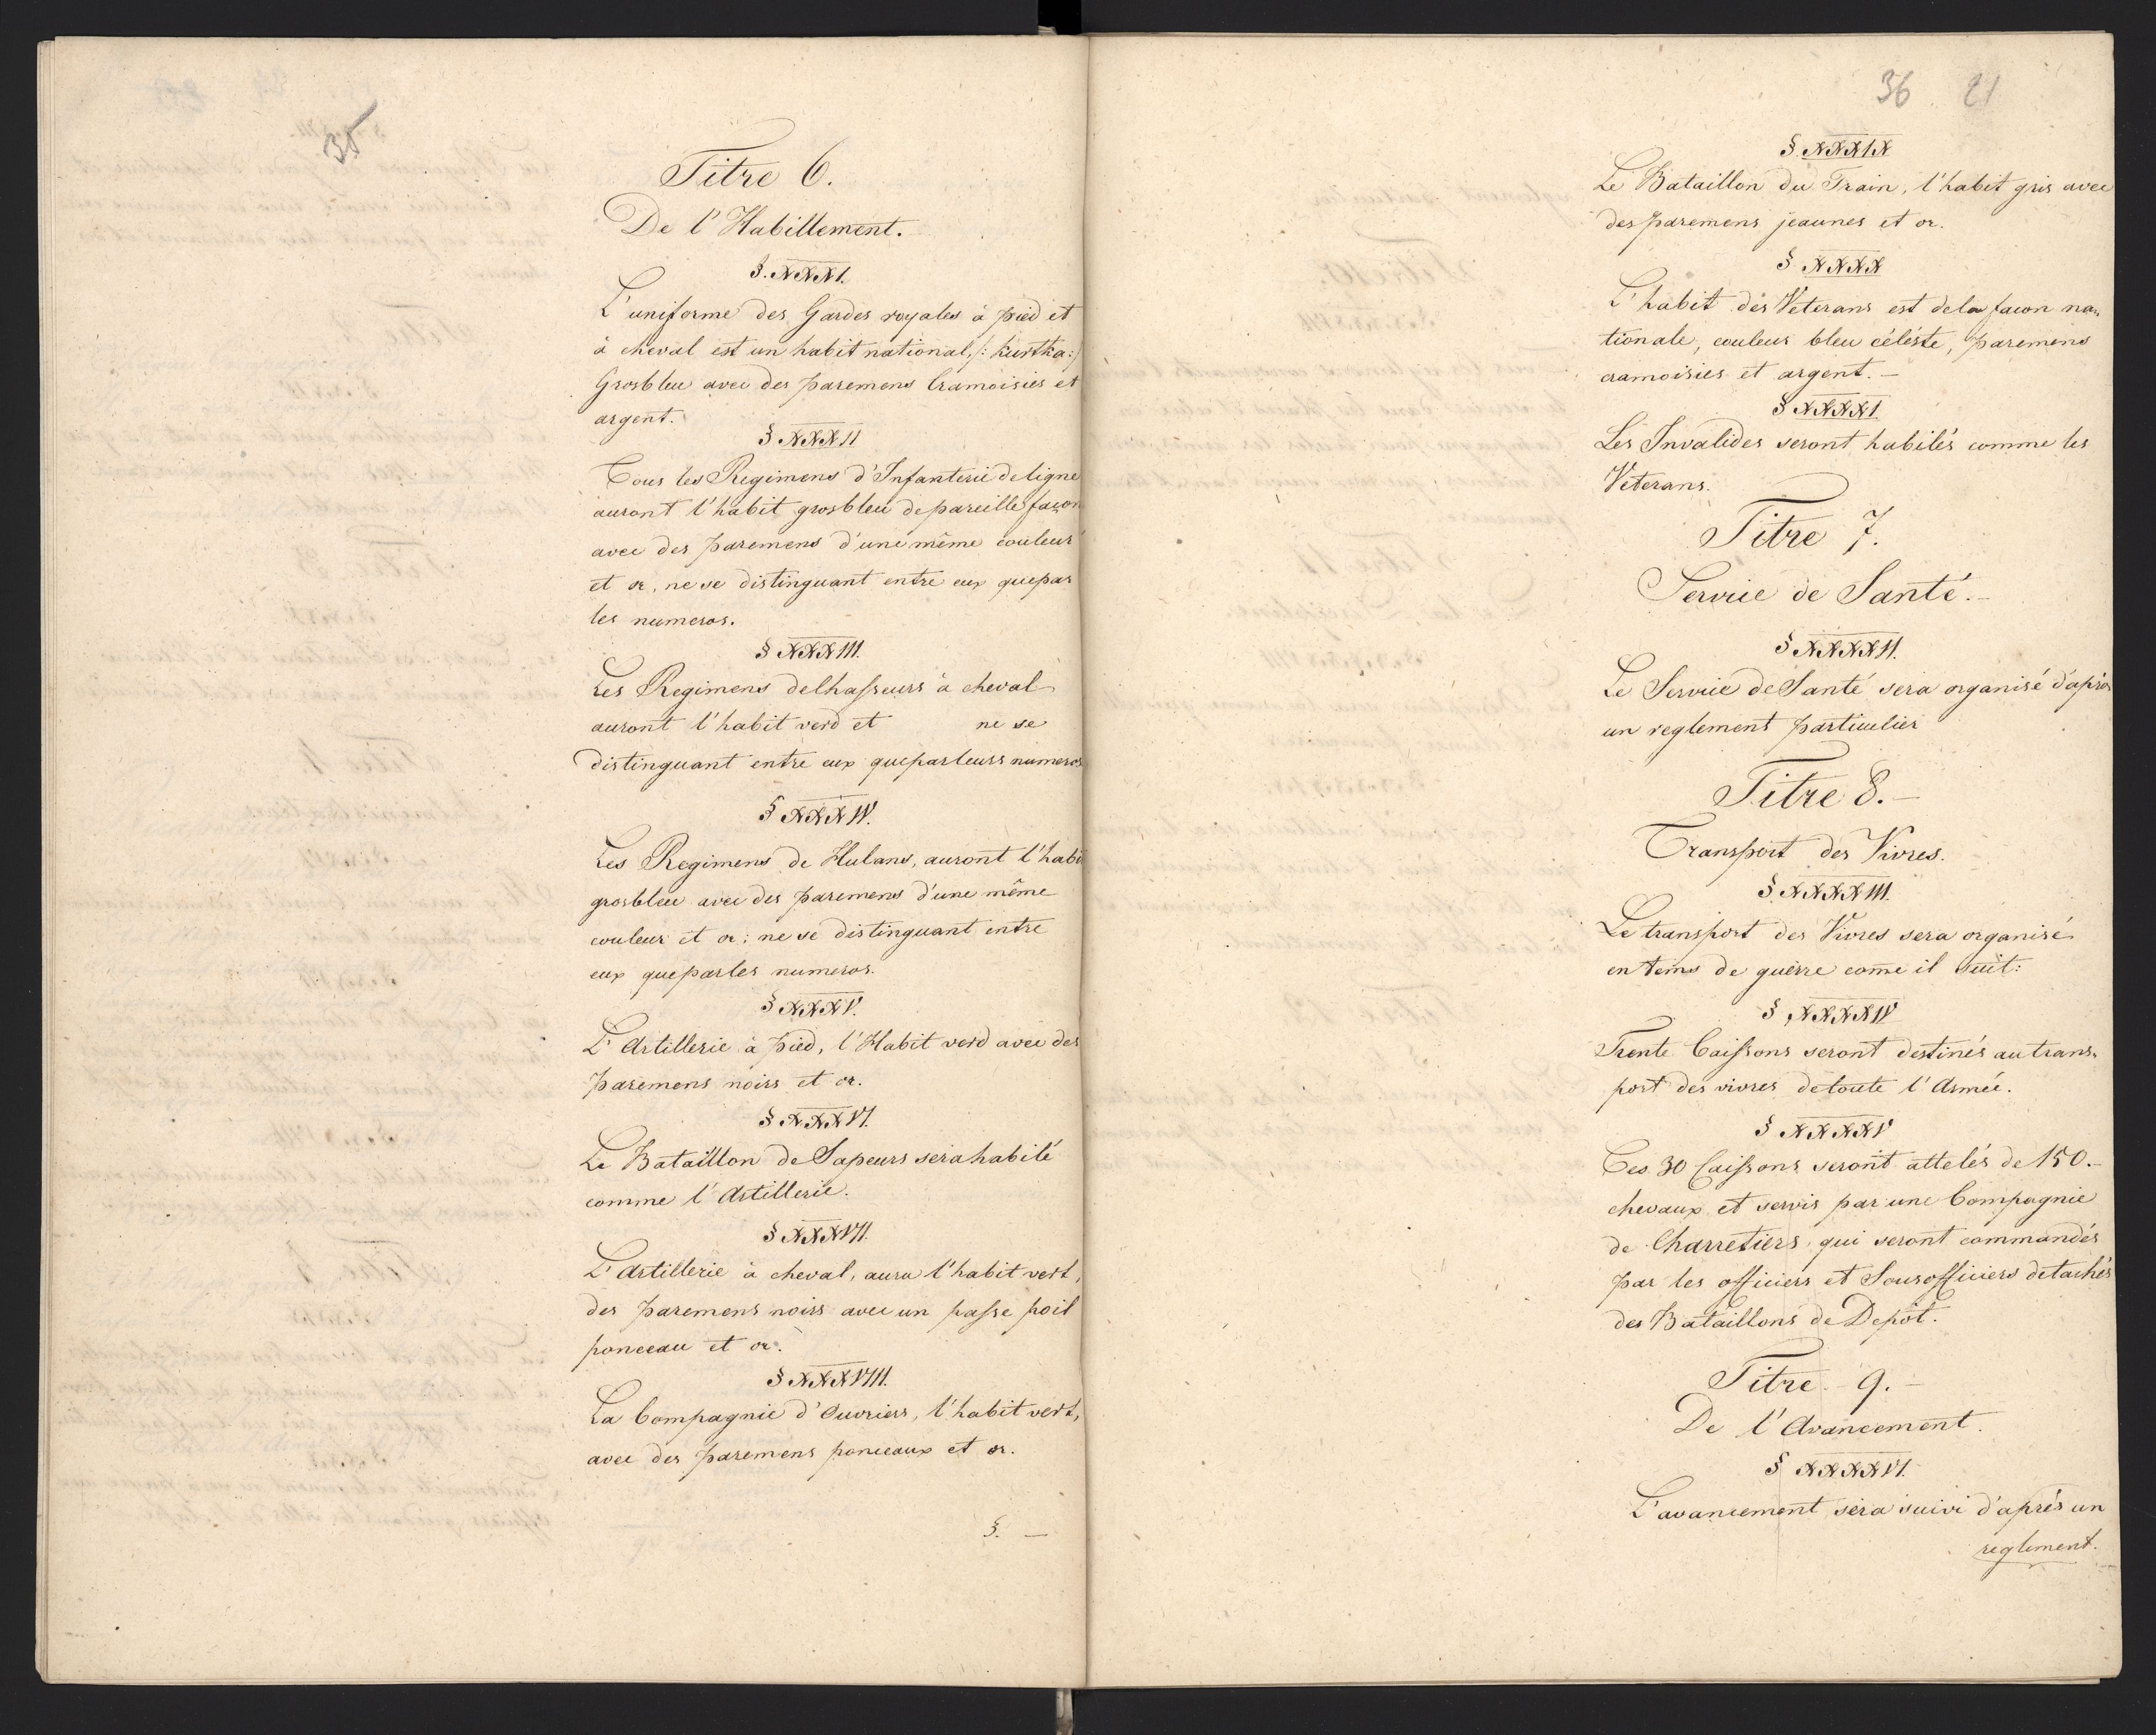 35
Titre 6.
De l'Habillement.
§. XXXI.
L'uniforme des Gardes royales à pied et
à cheval est un habit national, /: kurtka :/
Grosbleu avec des paremens Cramoisies et
argent.
§ XXXII
Tous les Regimens d'Infanterie de ligne
auront l'habit grosbleu de pareille façon
avec des paremens d'une même couleur
et or, ne se distinguant entre eux que par
les numeros.
§ XXXIII.
Les Regimens de Chasseurs à cheval
auront l'habit verd et ne se
distinguant entre eux que par leurs numeros
§ XXXIV.
Les Regimens de Hulans, auront l'habi
grosbleu avec des paremens d'une même
couleur et or; ne se distinguant entre
eux que par les numeros.
§ XXXV.
L'Artillerie à pied, l'Habit verd avec des
paremens noirs et or.
§ XXXVI.
Le Bataillon de Sapeurs sera habilé
comme l'Artillerie.
§ XXXVII.
L'Artillerie à cheval, aura l'habit vert,
des paremens noirs avec un passe poil
ponceau et or.
§ XXXVIII.
La Compagnie d'Ouvriers, l'habit vert,
avec des paremens ponceaux et or.
§. —
36 21
§. XXXIX
Le Bataillon du Train, l'habit gris avec
des paremens jeaunes et or.
§ XXXX
L'habit des Veterans est de la facon na=
tionale, couleur bleu céléste, paremens
cramoisies et argent. —
§ XXXXI
Les Invalides seront habilés comme les
Veterans.
Titre 7.
Service de Santé. —
§ XXXXII.
Le Service de Santé sera organisé d'après
un reglement particulier
Titre 8. —
Transport des Vivres.
§. XXXXIII.
Le transport des Vivres sera organisé
en tems de guerre com̄e il suit:
§ XXXXIV
Trente Caissons seront destinés au trans=
port des vivres de toute l'Armée.
§ XXXXV
Ces 30 Caissons seront attelés de 150. —
chevaux et servis par une Compagnie
de Charretiers qui seront commandés
par les officiers et Sousofficiers detachés
des Bataillons de Depôt.
Titre 9. —
De l'Avancement.
§ XXXXVI.
L'avancement sera suivi d'après un
reglement.